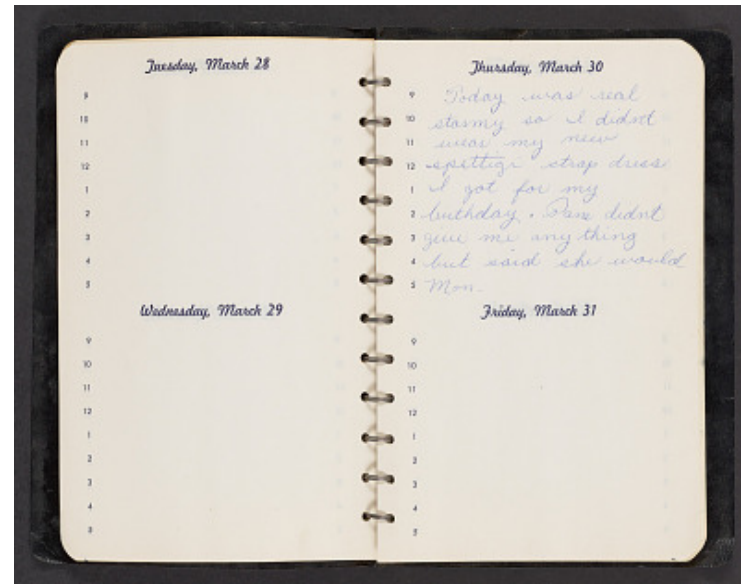 Tuesday, March 28
9
10
11
12
1
2
3
4
5
Wednesday, March 29
9
10
11
12
1
2
3
4
5
Thursday, March 30
9 Today was real
10 stormy so I didn't
11 wear my new
12 spettigi strap dress
1 I got for my
2 birthday. Pam didnt
3 give me anything
4 but said she would
5 Mon.
Friday, March 31
9
10
11
12
1
2
3
4
5